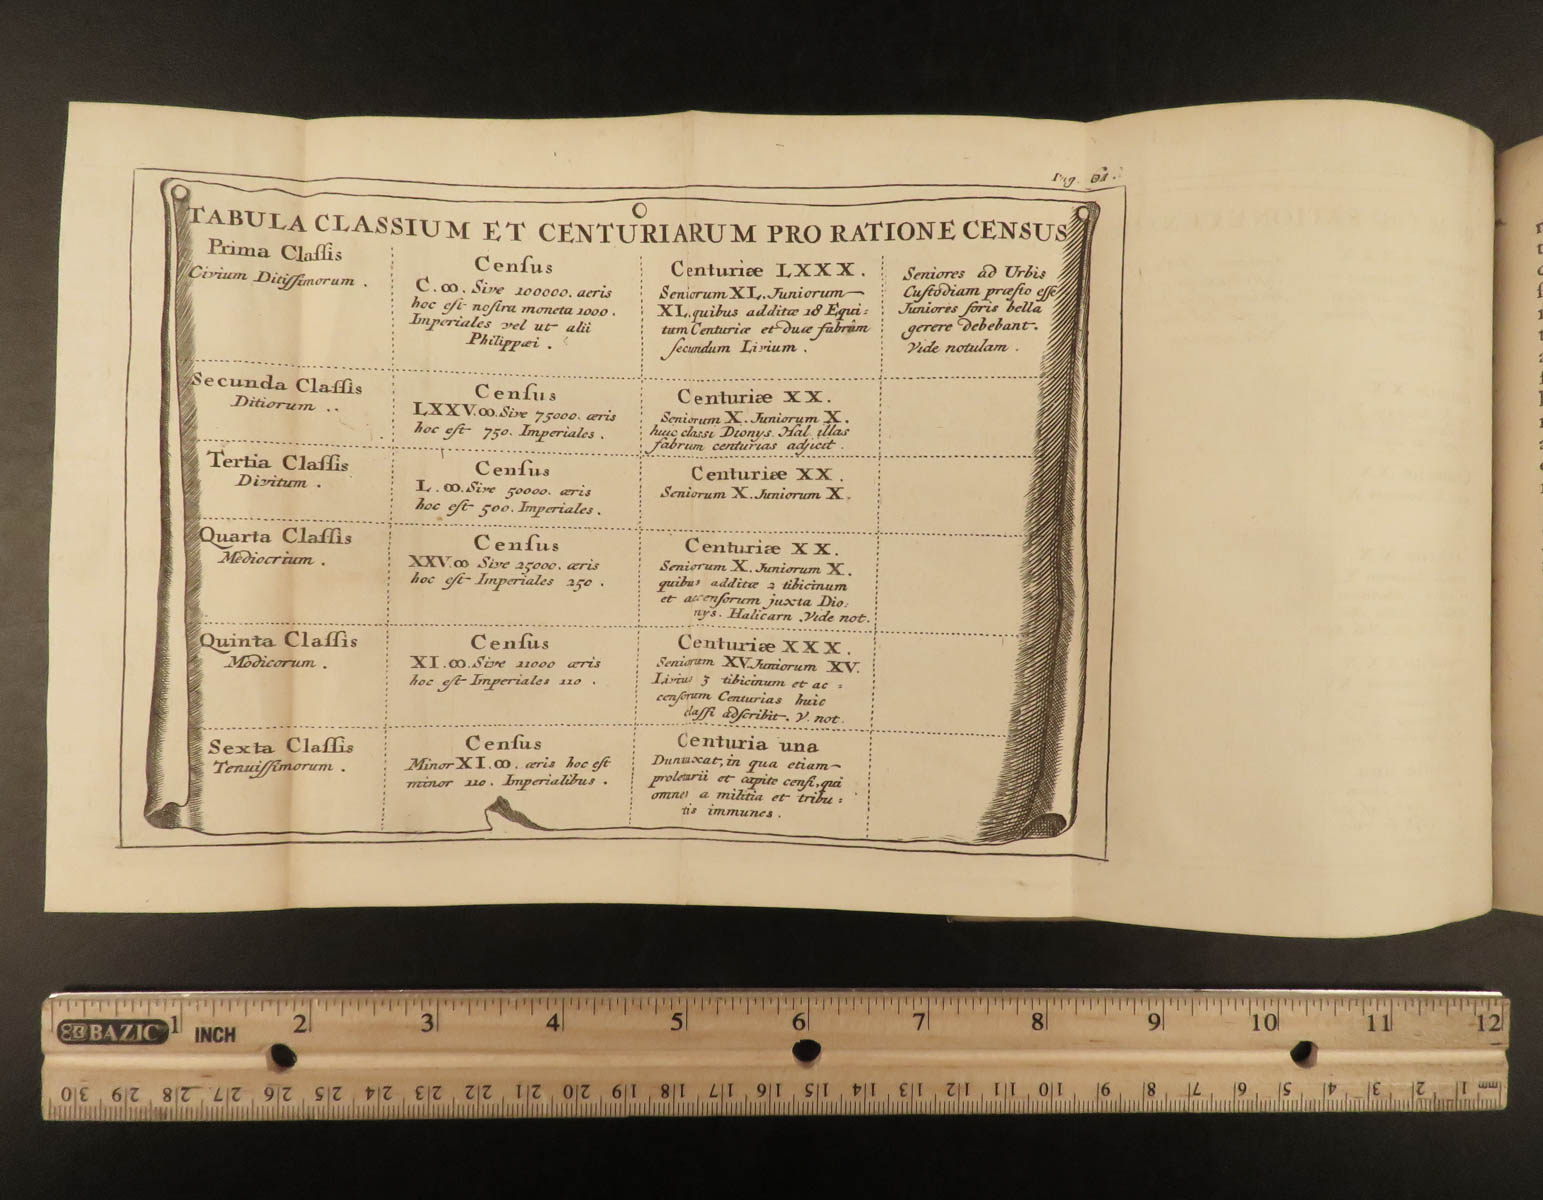 Pag. 61.
TABULA CLASSIUM ET CENTURIARUM PRO RATIONE CENSUS
Prima Claſſis
Civium Ditiſſimorum .
Cenſus
C.ꝏ. Sive 100000. aeris
hoc eſt noſtra moneta 1000 .
Imperiales vel ut alii
Philippæi .
Centuriæ LXXX.
Seniorum XL. Juniorum
XL. quibus additæ 18 Equi:
tum Centuriæ et duæ fabrûm
ſecundum Livium .
Seniores ad Urbis
Cuſtodiam præſto eſſe
Juniores foris bella
gerere debebant.
Vide notulam .
Secunda Claſſis
Ditiorum . .
Cenſus
LXXV.ꝏ. Sive 75000. æris
hoc eſt 750. Imperiales .
Centuriæ XX.
Seniorum X. Juniorum X.
huic classi Dionys. Hal. illas
fabrum centurias adjicit .
Tertia Claſſis
Divitum .
Cenſus
L.ꝏ. Sive 50000. æris
hoc eſt 500. Imperiales .
Centuriæ XX .
Seniorum X. Juniorum X.
Quarta Claſſis
Mediocrium .
Cenſus
XXV.ꝏ Sive 25000. æris
hoc eſt Imperiales 250 .
Centuriæ XX.
Seniorum X. Juniorum X.
quibus additæ 2 tibicinum
et accenſorum juxta Dio:
nys. Halicarn . Vide not.
Quinta Claſſis
Modicorum .
Cenſus
XI.ꝏ. Sive 11000 æris
hoc eſt Imperiales 110 .
Centuriæ XXX.
Seniorum XV. Juniorum XV.
Livius 3 tibicinum et ac :
cenſorum Centurias huic
claſſi adſcribit. V. not.
Sexta Claſſis
Tenuiſſimorum .
Cenſus
Minor XI.ꝏ. æris hoc eſt
minor 110. Imperialibus .
Centuria una
Duntaxat, in qua etiam
proletarii et capite cenſi, qui
omnes a militia et tribu :
tis immunes .
BAZIC 1 INCH 2 3 4 5 6 7 8 9 10 11 12
30 29 28 27 26 25 24 23 22 21 20 19 18 17 16 15 14 13 12 11 10 9 8 7 6 5 4 3 2 1 mm